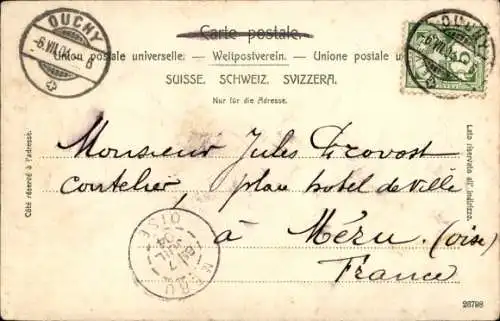 OUCHY
6.VII.04. 8
Carte postale.
OUCHY
Union postale universelle. — Weltpostverein. — Unione postale
SUISSE. SCHWEIZ. SVIZZERA.
Nur für die Adresse.
Côté réservé à l'adresse.
Lato riservato all' indirizzo.
Monsieur Jules Provost
coutelier, place hotel de ville
à Méru (oise)
France
MERU
OISE
7
JUIL
04
26798